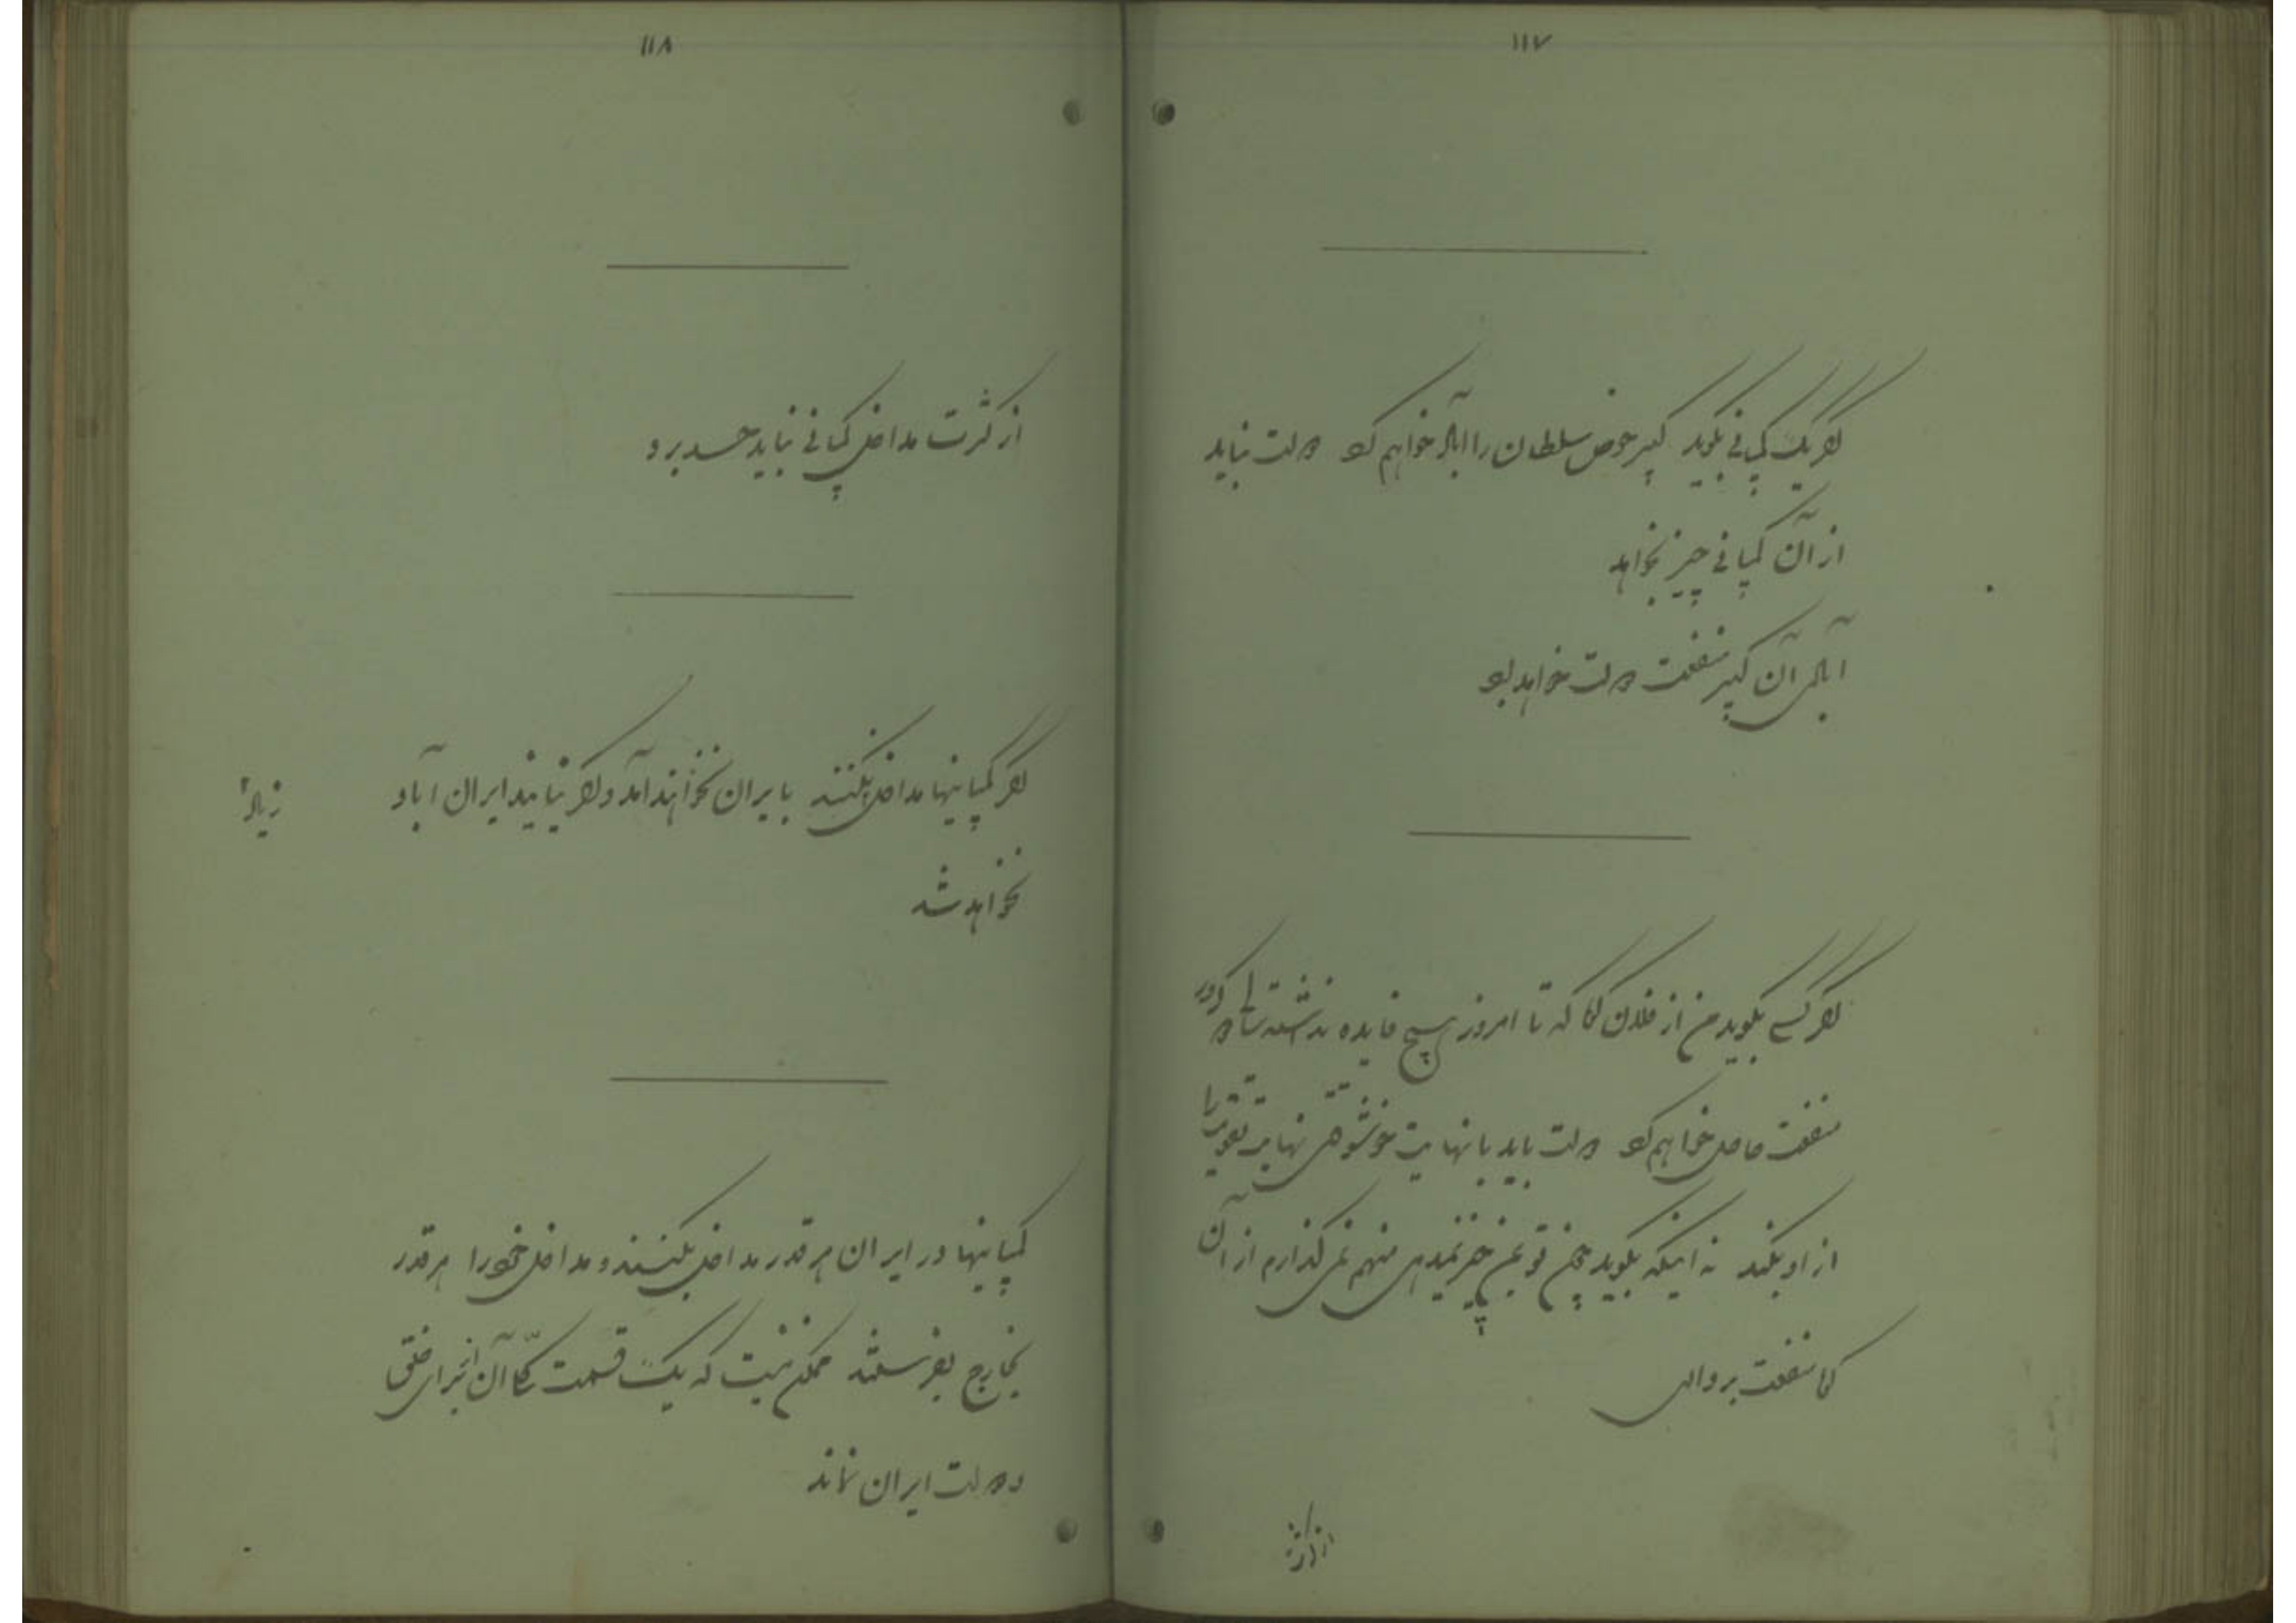 ۱۱۷
اگر یک کمپانی بگوید کویر حوض سلطان را آباد خواهم کرد دولت نباید
از آن کمپانی چیز بخواهد
آبادی آن کویر منفعت دولت خواهد بود
اگر کسی بگوید من از فلان کار که تا امروز هیچ فایده نداشته سالی دو کرور
منفعت حاصل خواهم کرد دولت باید با نهایت خوشوقتی نهایت تقویت را
از او بکند نه اینکه بگوید چون تو بمن چیز نمیدهی منهم نمی گذارم از آن
کار منفعت برداری
از کثرت
۱۱۸
از کثرت مداخل کمپانی نباید حسد برد
اگر کمپانیها مداخل نکنند بایران نخواهند آمد و اگر نیایند ایران آباد
نخواهد شد
زیرا
کمپانیها در ایران هر قدر مداخل بکنند و مداخل خود را هر قدر
بخارج بفرستند ممکن نیست که یک قسمت کلی آن از برای خلق
و دولت ایران نماند